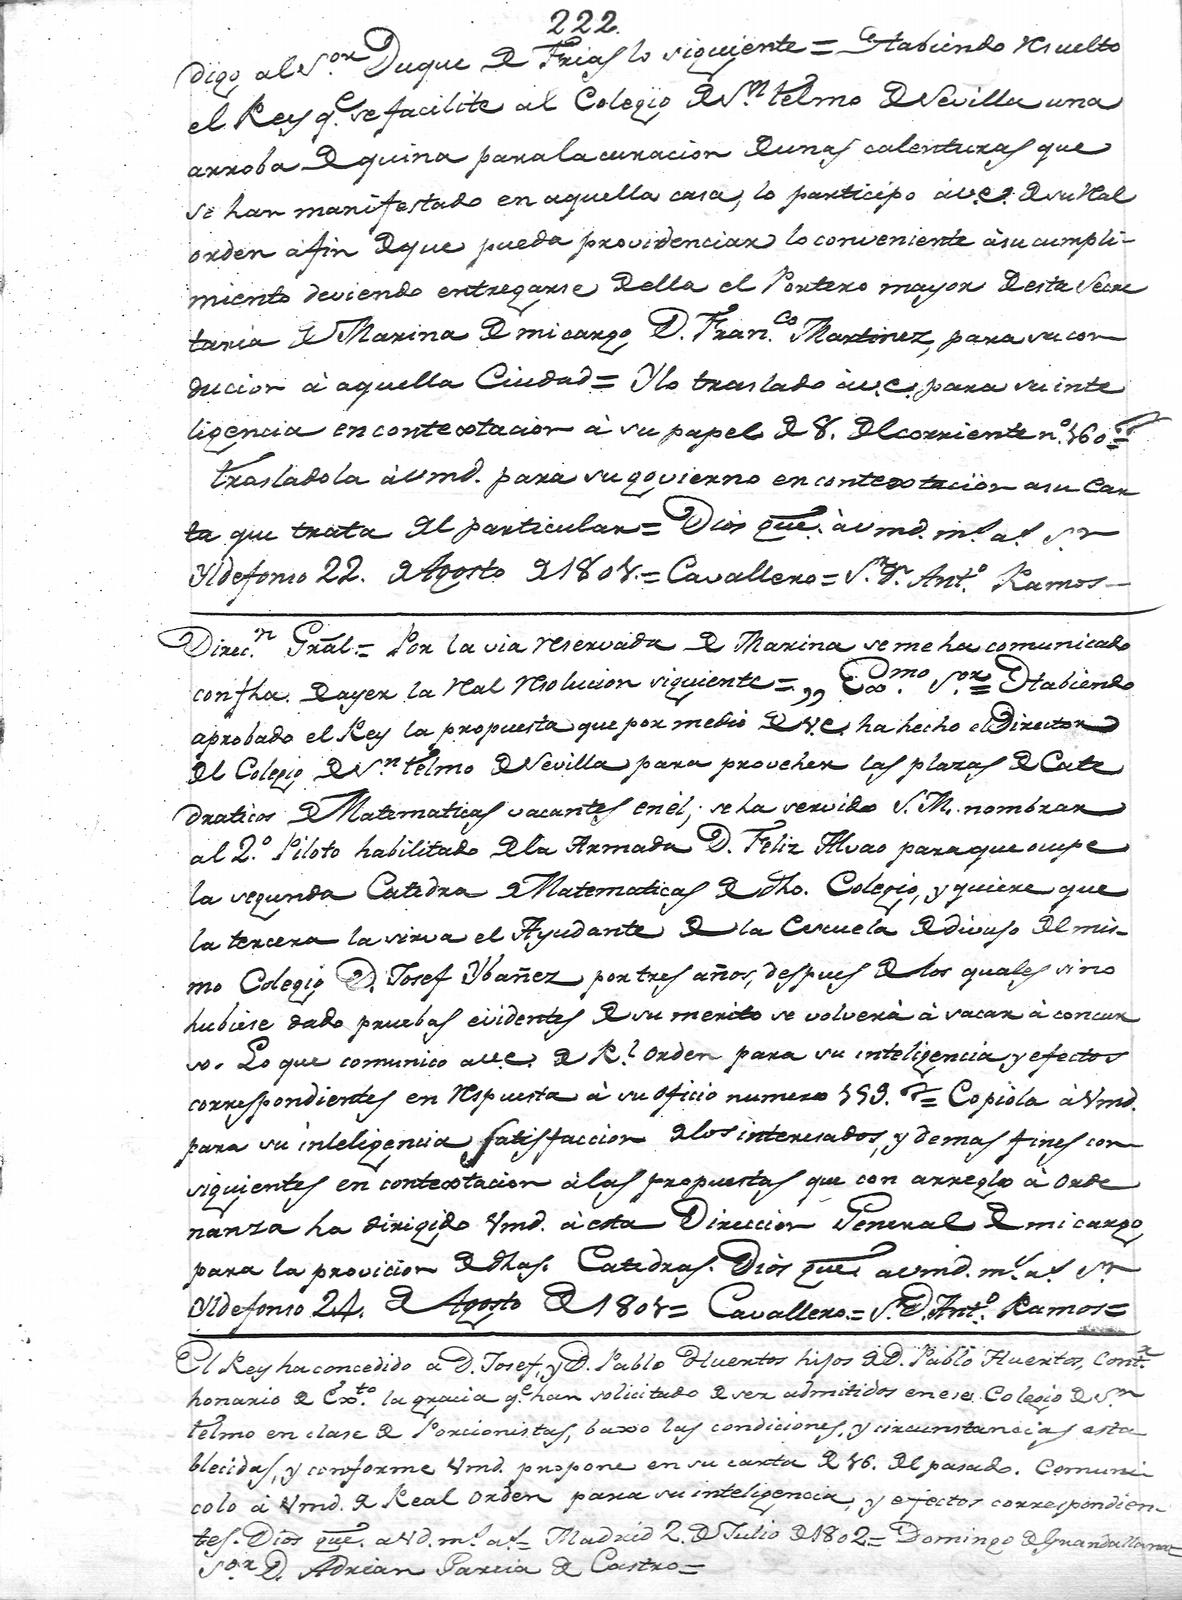 222.
digo al S.or Duque de Frias lo siguiente = Habiendo resuelto
el Rey q.e se facilite al Colegio de S.n telmo de Sevilla una
arroba de quina para la curacion de unas calenturas que
se han manifestado en aquella casa, lo participo à v.e. de su Real
orden à fin de que pueda providenciar lo conveniente à su cumpli-
miento deviendo entregarse de ella el Portero mayor de esta Secre
taria de Marina de mi cargo D. Fran.co Martinez, para su con
ducion à aquella Ciudad = Ylo traslado à v.e. para su inte
ligencia en contextacion à su papel de 8. del corriente n.o 160 =
trasladola à vmd. para su govierno en contextacion a su Car
ta que trata del particular = Dios gue. à vmd. m.s a.s S.n
Yldefonso 22. de Agosto de 1808. = Cavallero = S.r D.n Ant.o Ramos-
Direc.n Gràl = Por la via reservada de Marina se me ha comunicado
con fha. de ayer la Real resolucion siguiente = ,, Exmo. S.or = Habiendo
aprobado el Rey la propuesta que por medio de v.e. ha hecho el Director
del Colegio de S.n telmo de Sevilla para proveher las plazas de Cate
draticos de Matematicas vacantes en èl; se ha servido S. M. nombrar
al 2.o Piloto habilitado de la Armada D. Feliz Alvao para que ocupe
la segunda Catedra de Matematicas de dho. Colegio, y quiere que
la tercera la sirva el Ayudante de la Escuela de divujo del mis-
mo Colegio D. Josef Ybañez por tres años, despues de los quales si no
hubiese dado pruebas evidentes de su merito se volverà à sacar à concur
so. Lo que comunico a v.e. de R.l orden para su inteligencia y efectos
correspondientes en respuesta à su oficio numero 159. = Copiòla à Vmd.
para su inteligencia, satisfaccion de los interesados, y demas fines con
siguientes en contextacion à las propuestas que con arreglo à orde
nanza ha dirigido Vmd. à esta Direccion General de mi cargo
para la provicion de dhas. Catedras. Dios gue. a vmd. m.s a.s S.n
Yldefonso 24. de Agosto de 1808 = Cavallero = S. D. Ant.o Ramos =
El Rey ha concedido a D. Josef, y D. Pablo Huertos hijos de D. Pablo Huertos,
honario de Ex.to la gracia q.e han solicitado de ser admitidos en ese Colegio de S.n
telmo en clase de Porcionistas, baxo las condiciones, y circunstancias esta
blecidas, y conforme Vmd. propone en su carta de 16. del pasado. Comuni
colo à Vmd. de Real orden para su inteligencia, y efectos correspondien-
tes. Dios gue. a Vd. m.s a.s = Madrid 2. de Julio de 1802 = Domingo de Grandallana
S.or D. Adrian Garcia de Castro =